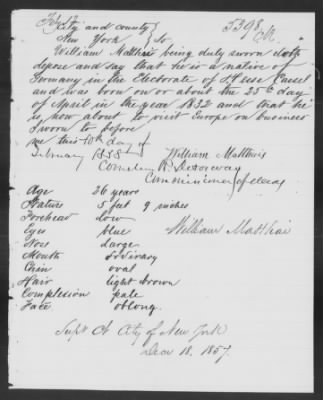 Feby 12
City and county }
New York } So
William Matthias being duly sworn doth
depose and say that he is a native of
Germany in the Electorate of Hesse Cassel
and was born on or about the 25th day
of April in the year 1832 and that he
is now about to visit Europe on business
Sworn to before
me this 10th day of
February 1858
William Matthias
Commissioner of deeds
Age 26 years
Stature 5 feet 9 inches
Forehead low
Eyes blue
Nose large
Mouth ordinary
Chin oval
Hair light brown
Complexion pale
Face oblong
William Matthias
Supr Ct City of New York
Decr 18. 1857.